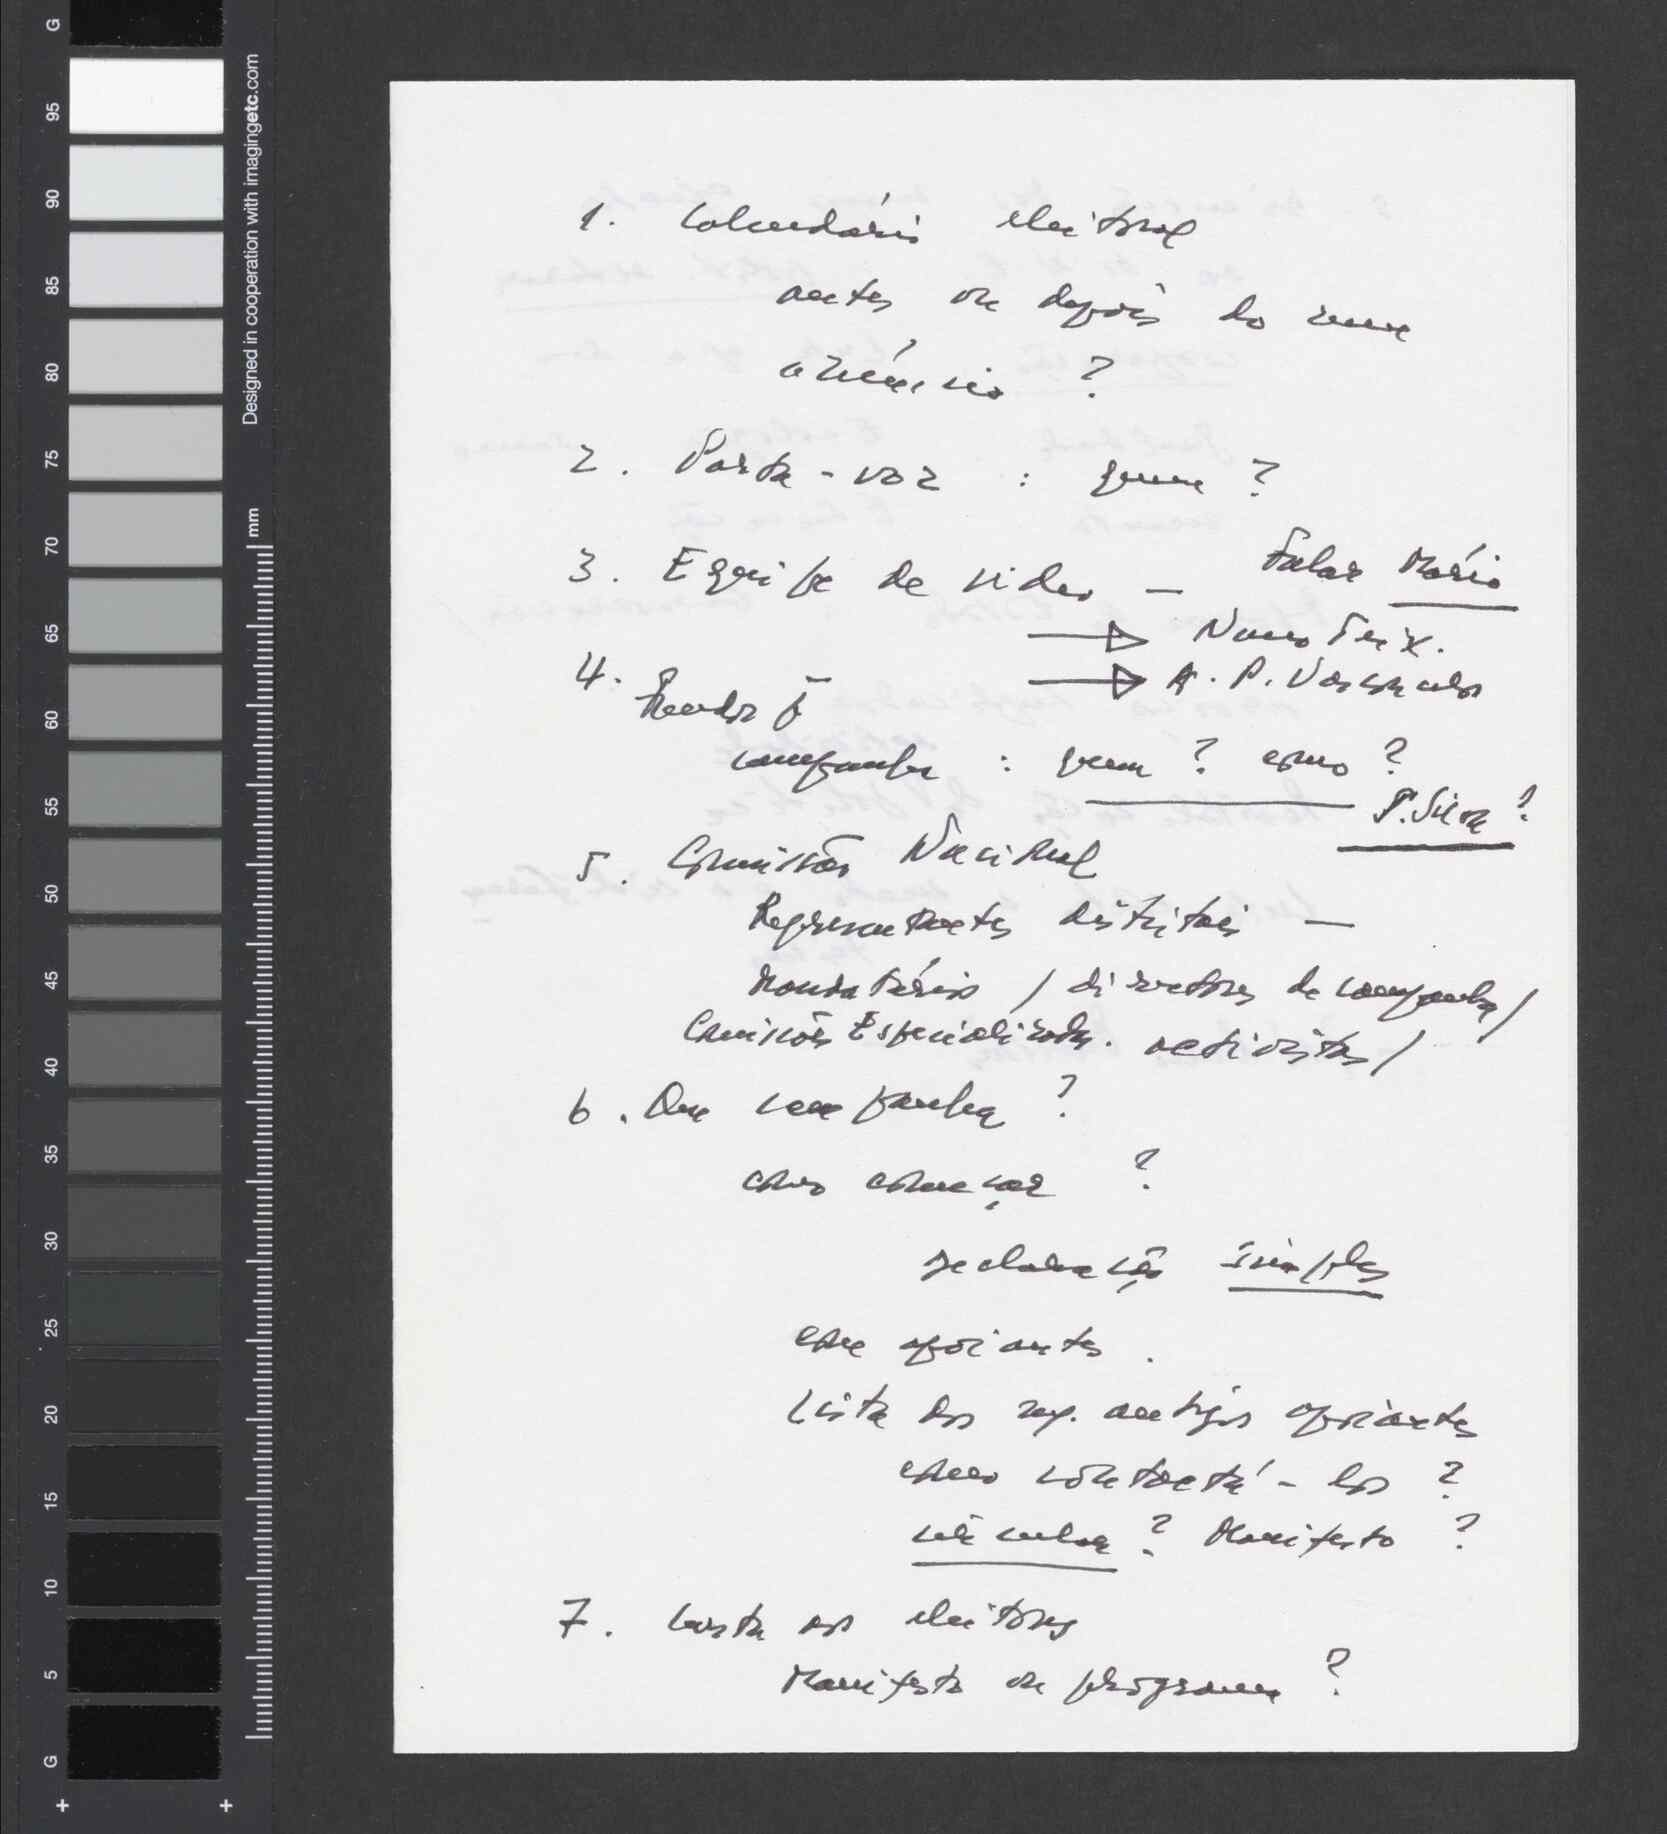 1. Calendário eleitoral
antes ou depois do meu
anúncio ?
2. Porta-voz : quem ?
3. Equipe de video — Falar Mário
Nuno Teix.
4. A. P. Vasconcelos
campanha : quem ? como ?
P. Silva ?
5. Comissão Nacional
Representantes distritais —
Mandatários / directores de campanha /
Comissões Especializadas. activistas /
6. Que campanha ?
como começar ?
declaração simples
com apoiantes .
Lista dos antigos apoiantes
como contactá-los ?
circular ? Manifesto ?
7. Carta aos eleitores
Manifesto ou programa ?
G
95
90
85
80
75
70
65
60
55
50
45
40
35
30
25
20
15
10
5
G
Designed in cooperation with imagingetc.com
mm